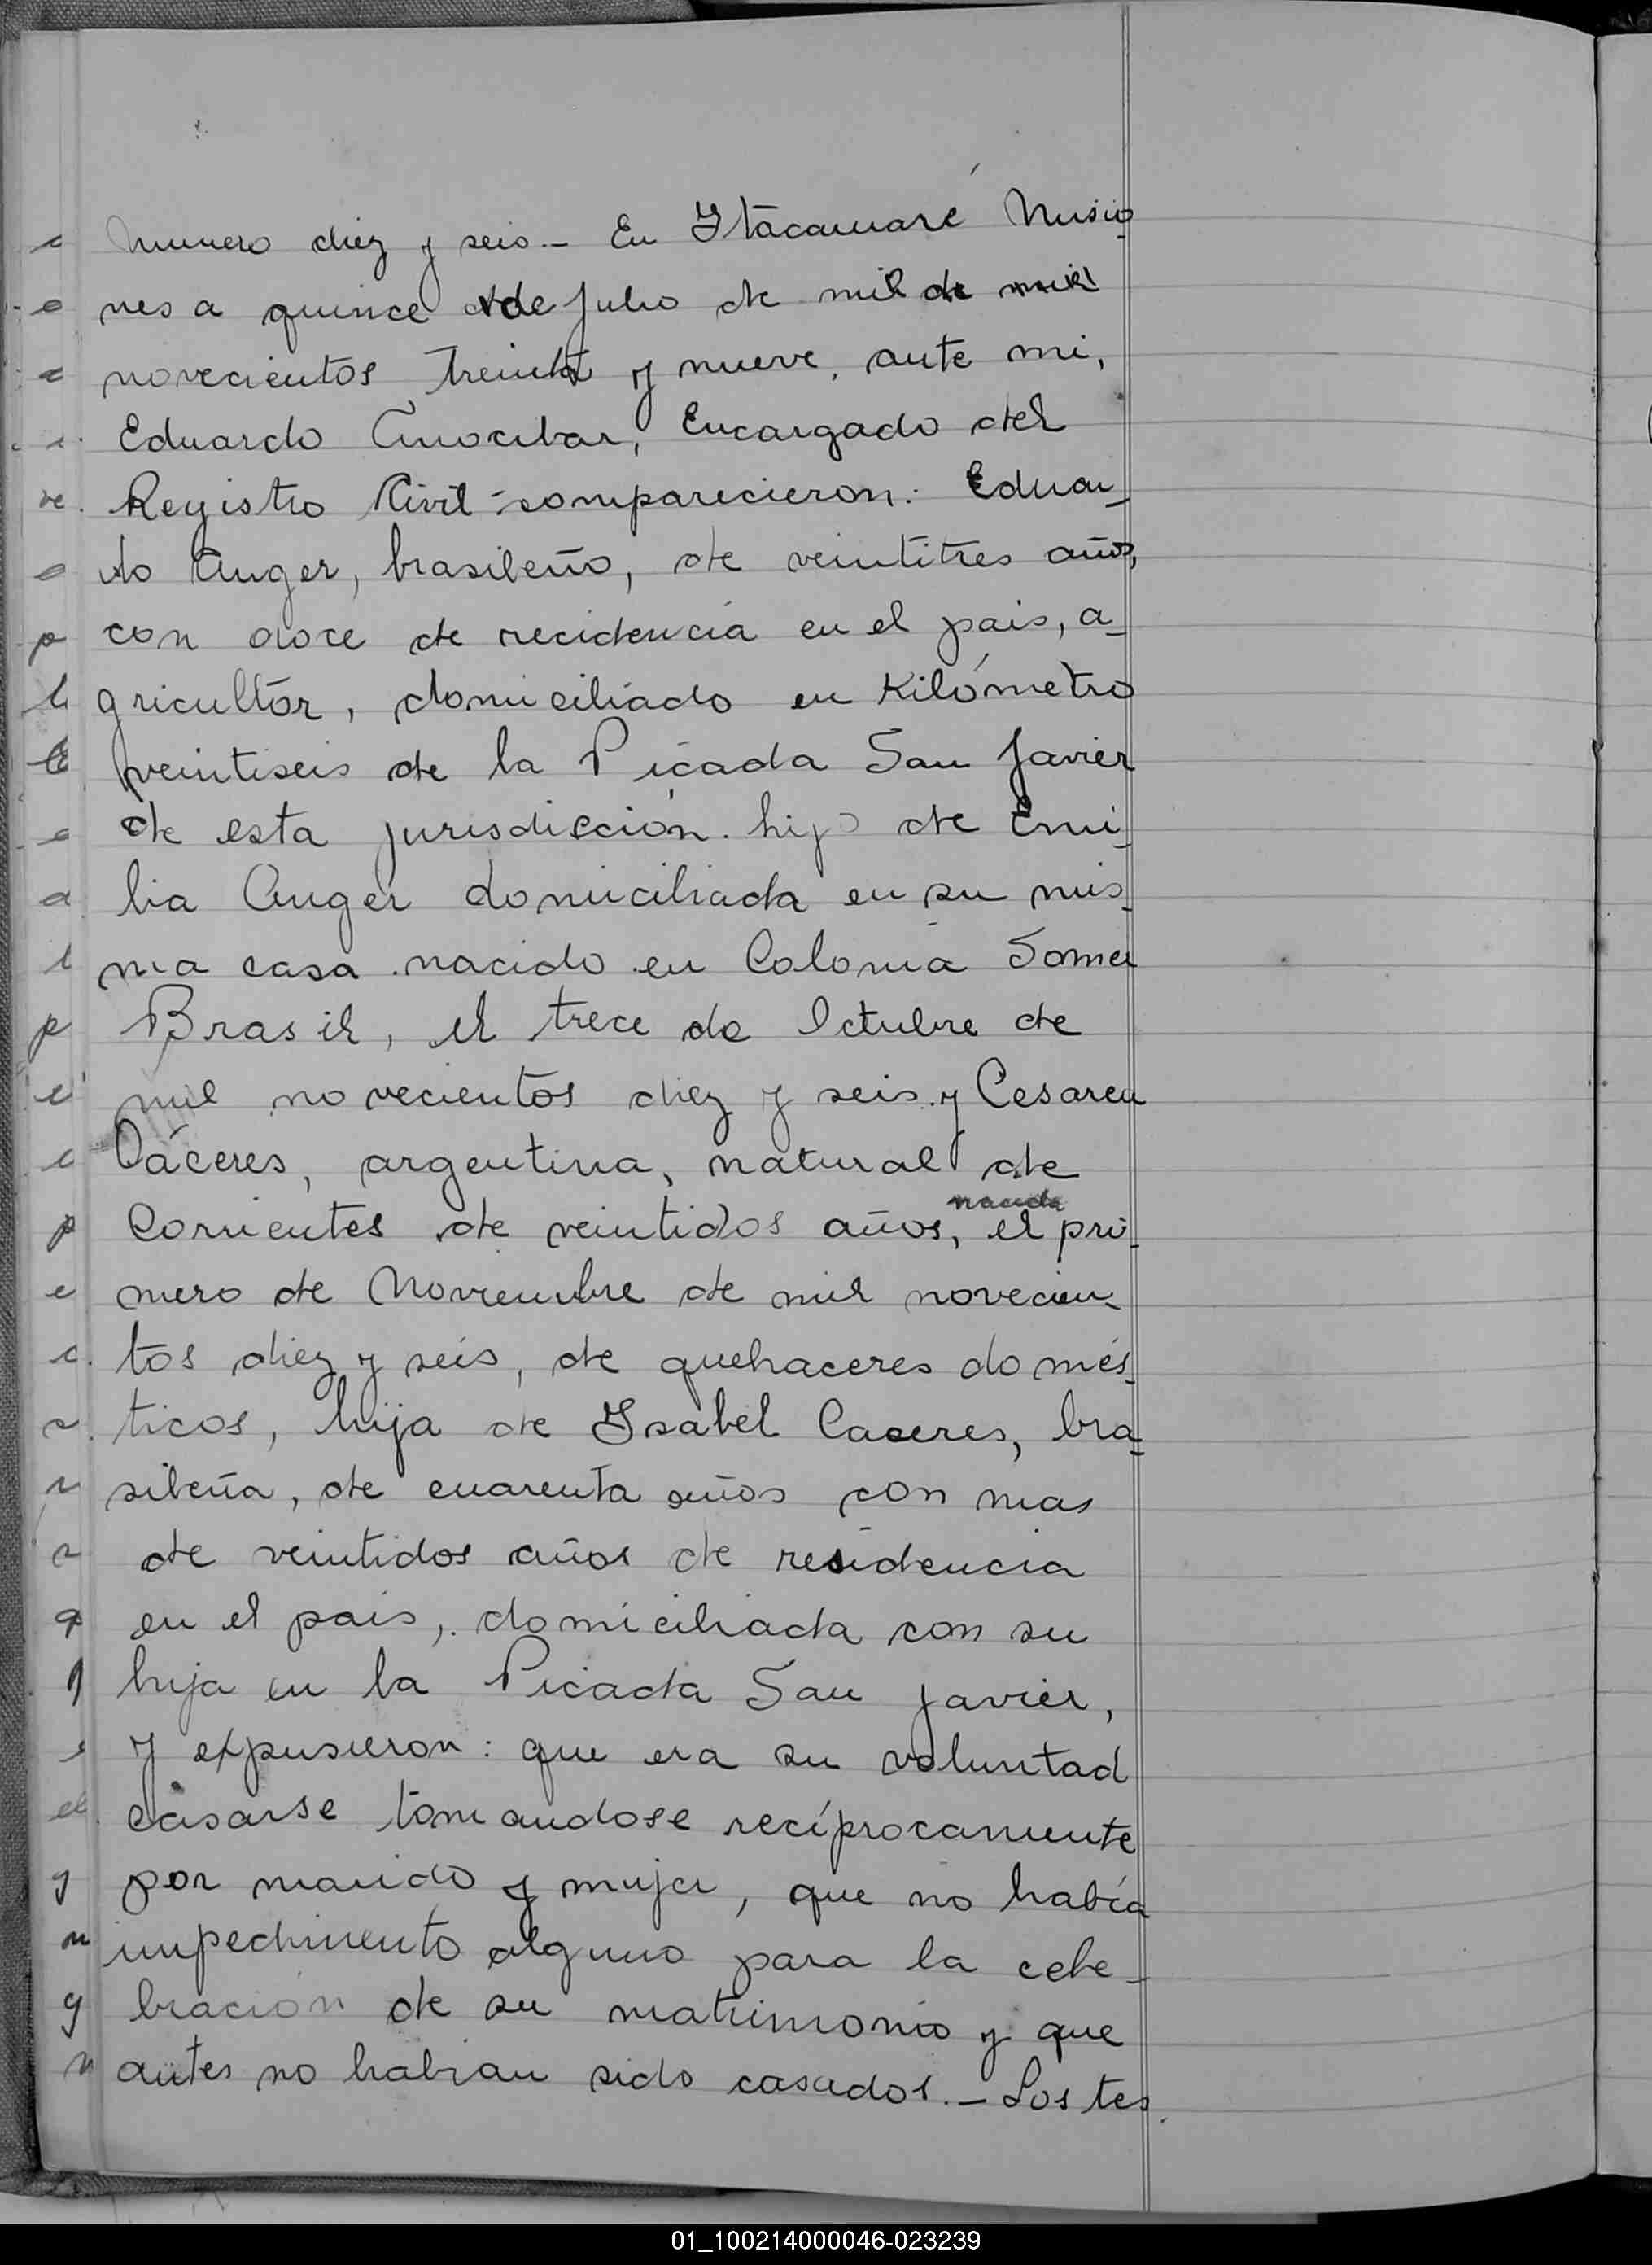 Numero diez y seis.- En Itacamaré Misio-
nes a quince de Julio de mil de mil
novecientos treinta y nueve, ante mi,
Eduardo Anocibar, Encargado del
Registro Civil comparecieron: Eduar-
do Anger, brasileño, de veintitres años,
con doce de recidencia en el pais, a-
gricultor, domiciliado en Kilómetro
veintiseis de la Picada San Javier
de esta jurisdicción. hijo de Emi-
lia Anger domiciliada en su mis-
ma casa. nacido en Colonia
Brasil, el trece de Octubre de
mil novecientos diez y seis y Cesarea
Cáceres, argentina, natural de
nacida
Corrientes de veintidos años, el pri-
mero de Noviembre de mil novecien-
tos diez y seis, de quehaceres domés-
ticos, hija de Ysabel Caceres, bra-
sileña, de cuarenta años con mas
de veintidos años de residencia
en el pais, domiciliada con su
hija en la Picada San Javier,
y expusieron: que era su voluntad
casarse tomandose recíprocamente
por marido y mujer, que no había
impedimento alguno para la cele-
bración de su matrimonio y que
antes no habian sido casados.- Los tes
01_100214000046-023239